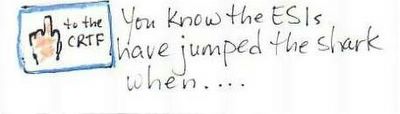 to the
CRTF
You know the ESIs
have jumped the shark
when....